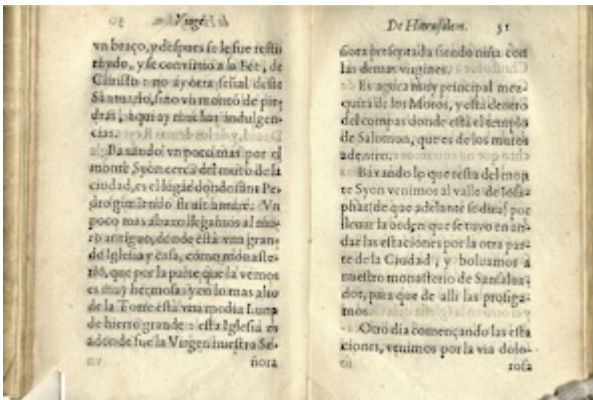 Viage
vn braço, y despues se le fue resti
tuydo, y se conuirtio a la Fè, de
Christo: no ay otra señal deste
Santuario, sino vn montõ de pie
dras, aqui ay muchas indulgen-
cias.
Baxando vn poco mas por el
monte Syon cerca del muro de la
ciudad, es el lugar donde sant Pe-
dro gimiendo
Vn
poco mas abaxo llegamos al mu-
ro antiguo, donde està vna gran-
de Iglesia y casa, como monaste-
rio, que por la parte que la vemos
es muy hermosa: y en lo mas alto
de la Torre està vna media Luna
de hierro grande: esta Iglesia es
adonde fue la Virgen nuestra Se-
ñora
De Hierusalem. 31
ñora presentada siendo niña con
las demas virgines.
Es agora muy principal mez-
quita de los Moros, y està dentro
del compas donde està el templo
de Salomon, que es de los muros
adentro.
Baxando lo que resta del mon
te Syon venimos al valle de Iosa-
phat: de que adelante se dira: por
lleuar la orden que se tuuo en an-
dar las estaciones por la otra par-
te de la Ciudad, y boluamos à
nuestro monasterio de San Salua-
dor, para que de alli las prosiga-
mos.
Otro dia començando las esta
ciones, venimos por la via dolo-
rosa